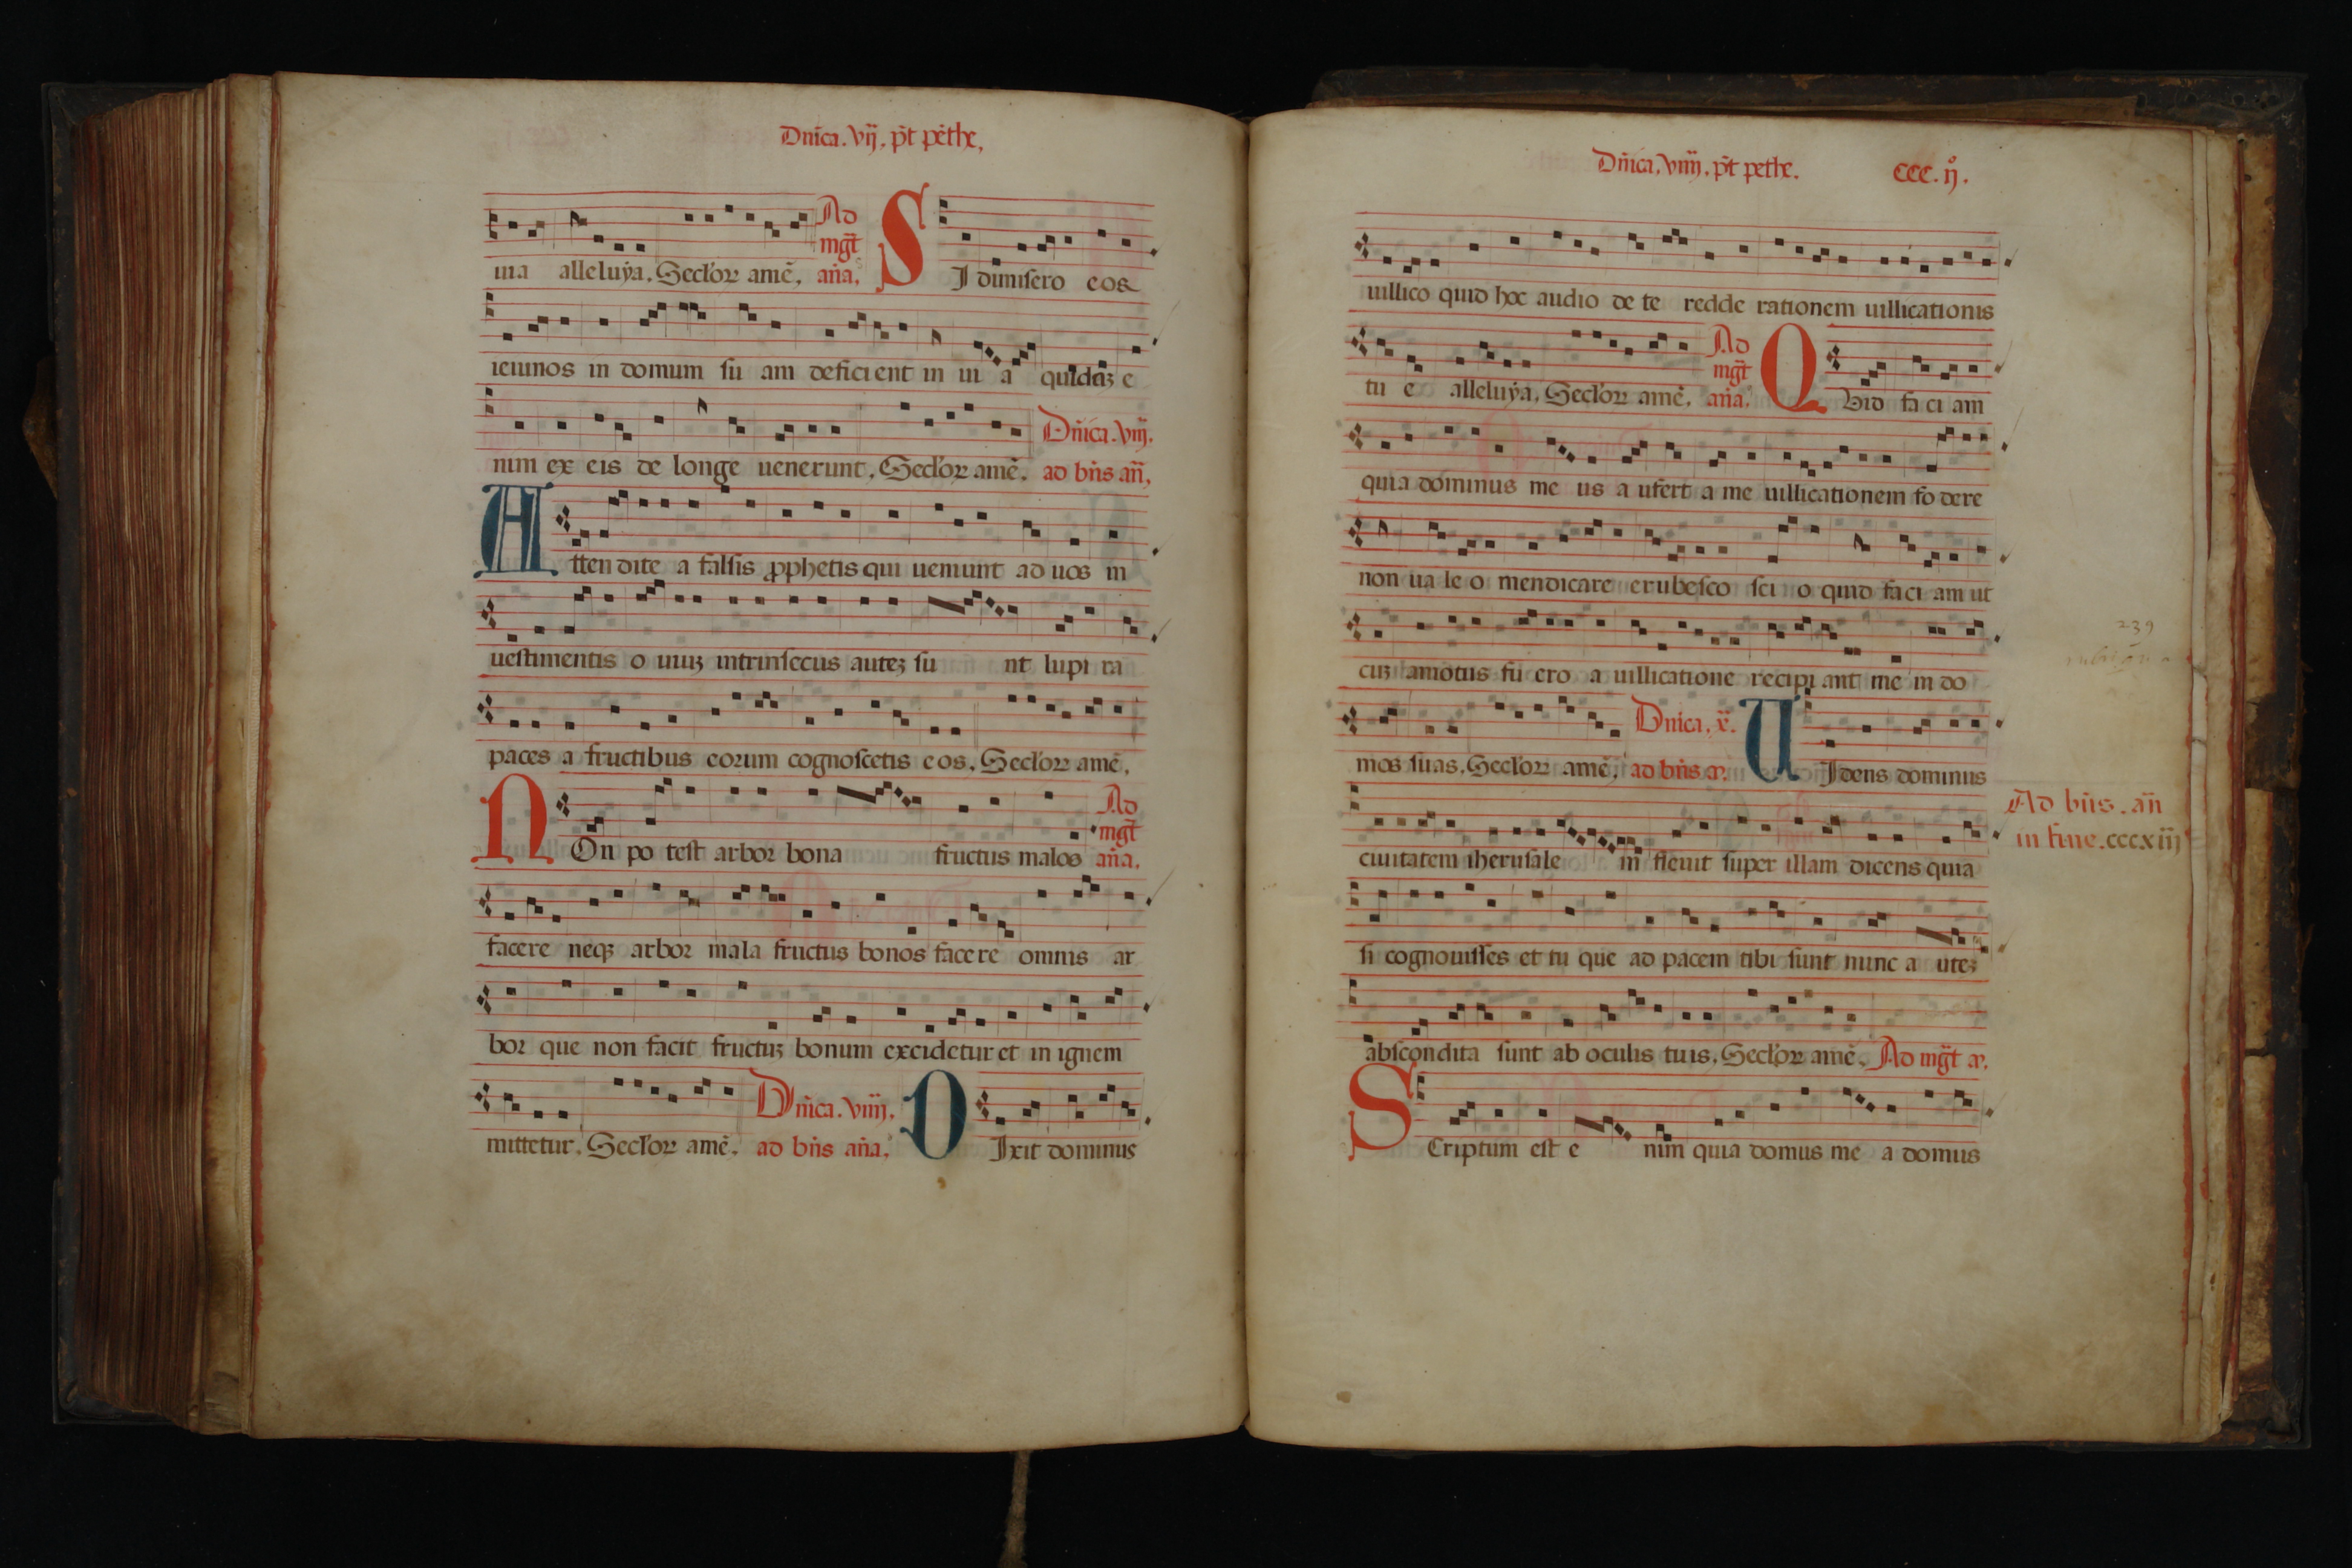 Dnica. vij. pt pethe.
uia alleluya. Seclor amē. Ad mgt aña. SI dimisero eos
ieiunos in domum su am deficient in ui a quidaz e
nim ex eis de longe uenerunt. Seclor amē. Dñica. viij. ad bñs añ.
Atten dite a falsis pphetis qui ueniunt ad uos in
uestimentis o uiuz intrinsecus autez su nt lupi ra
paces a fructibus eorum cognoscetis eos. Seclor amē.
NOn po test arbor bona fructus malos Ad mgt aña.
facere neqz arbor mala fructus bonos facere omnis ar
bor que non facit fructuz bonum excidetur et in ignem
mittetur. Seclor amē. Dñica. viiij. ad bñs aña. DIxit dominus
Dñica. viiij. pt pethe. ccc. ij.
uillico quid hoc audio de te redde rationem uillicationis
tu e alleluya. Seclor amē. Ad mgt aña. QUid faci am
quia dominus me us a ufert a me uillicationem fo dere
non ua le o mendicare erubesco sci o quid faci am ut
cuz amotus fu ero a uillicatione recipi ant me in do
mos suas. Seclor amē. Dnica. x. ad bñs a. UIdens dominus
ciuitatem iherusale m fleuit super illam dicens quia
si cognouisses et tu que ad pacem tibi sunt nunc a utez
abscondita sunt ab oculis tuis. Seclor amē. Ad mgt a.
SCriptum est e nim quia domus me a domus
239
Ad bñs. añ
in fine. cccxiij